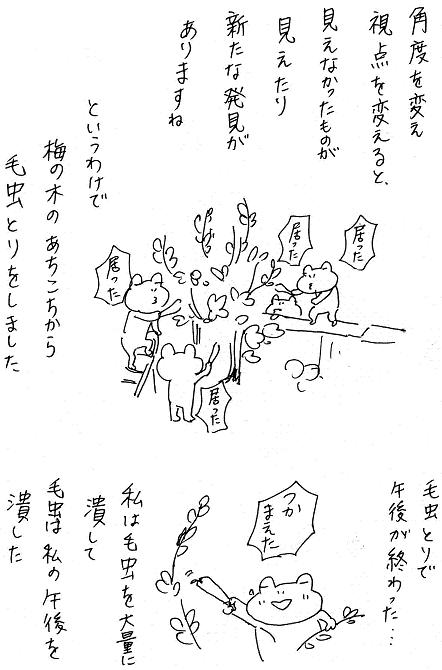 角度を変え
視点を変えると、
見えなかったものが
見えたり
新たな発見が
ありますね
というわけで
梅の木のあちこちから
毛虫とりをしました
居った
居った
居った
居った
毛虫とりで
午後が終わった…
つか
まえた
私は毛虫を大量に
潰して
毛虫は私の午後を
潰した